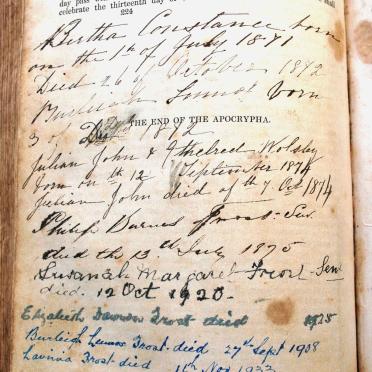 day pass
shall
celebrate the thirteenth day of
224
Bertha Constance born
on the 1st of July 1871
Died 26 of October 1872
Burleigh Lennox born
3 of Dec 1872
THE END OF THE APOCRYPHA.
Julian John & Ethelred Wolsley
born on th 12 September 1874
Julian John died of th 7 Oct 1874
Philip Barnes Frost - Sen.
died the 13th July 1875
Susanah Margaret Frost - Sen
died 12 Oct 1920.
Elizabeth Dawson Frost died 1925
Burleigh Lennox Frost - died 27th Sept 1938
Lavinia Frost - died 11th Nov 1933